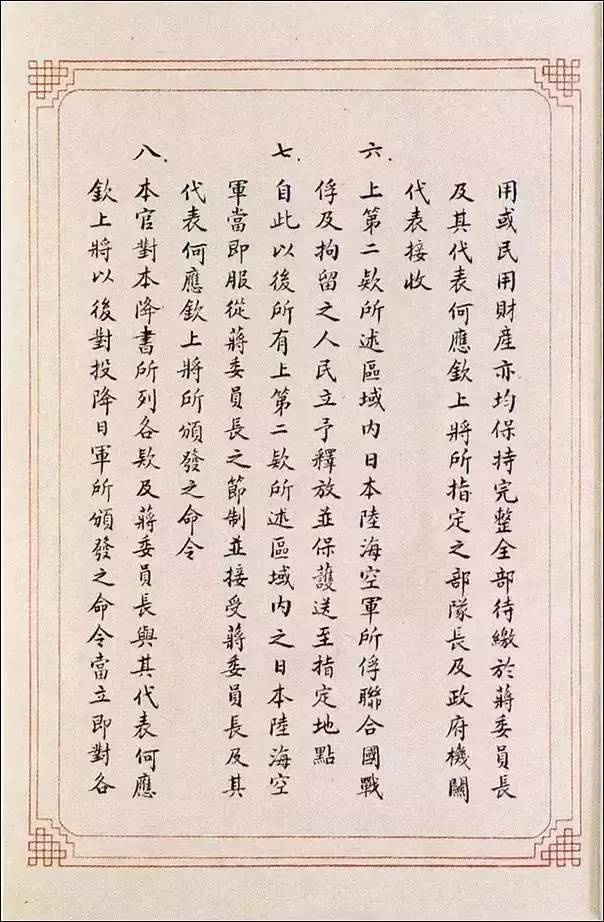 用或民用財產亦均保持完整全部待繳於蔣委員長
及其代表何應欽上將所指定之部隊長及政府機關
代表接收
六. 上第二款所述區域內日本陸海空軍所俘聯合國戰
俘及拘留之人民立予釋放並保護送至指定地點
七. 自此以後所有上第二款所述區域內之日本陸海空
軍當即服從蔣委員長之節制並接受蔣委員長及其
代表何應欽上將所頒發之命令
八. 本官對本降書所列各款及蔣委員長與其代表何應
欽上將以後對投降日軍所頒發之命令當立即對各